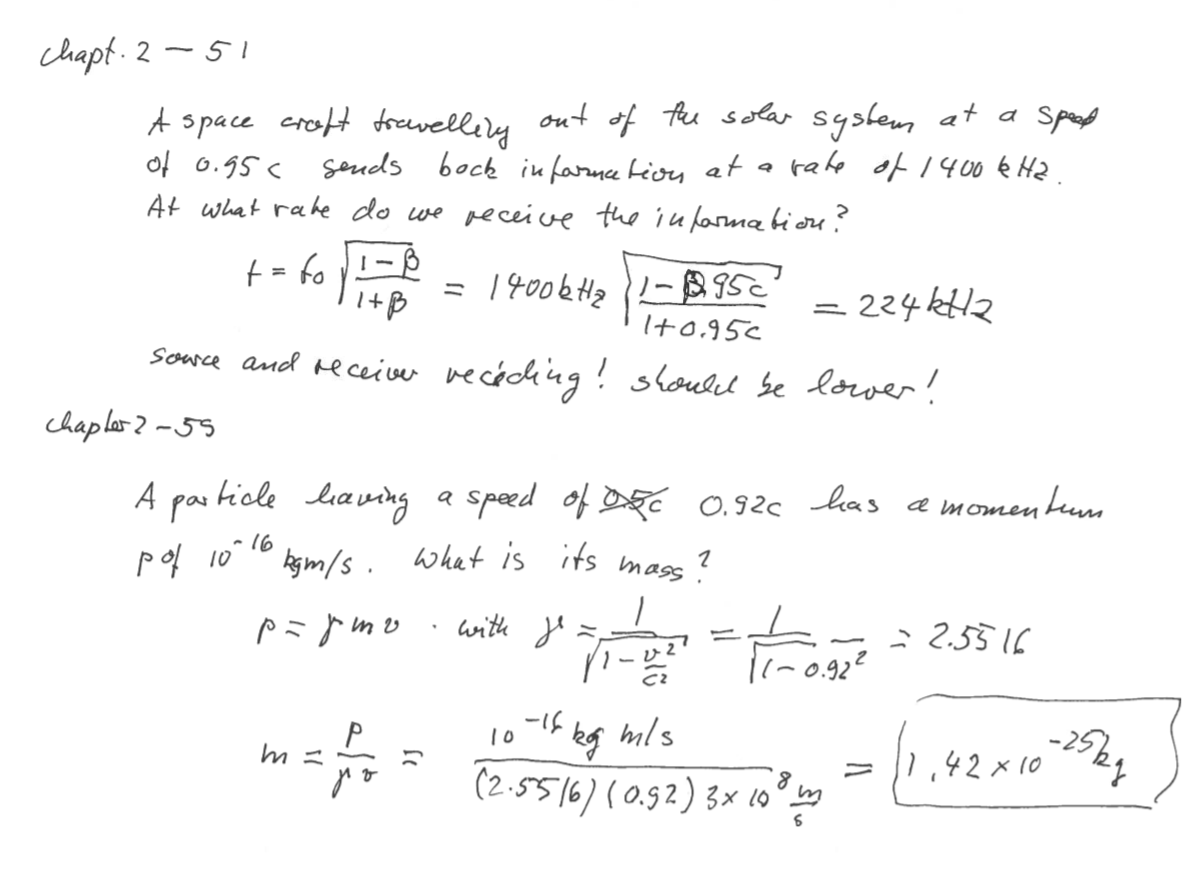 chapt. 2 – 51
A space craft travelling out of the solar system at a speed
of 0.95c sends back information at a rate of 1400 kHz.
At what rate do we receive the information?
f = f₀ √((1-β)/(1+β)) = 1400 kHz √((1-0.95c)/(1+0.95c)) = 224 kHz
source and receiver receding! should be lower!
chapter 2 – 55
A particle having a speed of 0.5c 0.92c has a momentum
p of 10⁻¹⁶ kgm/s. What is its mass?
p = γ m v . with γ = 1/√(1-v²/c²) = 1/√(1-0.92²) = 2.5516
m = p/(γv) = 10⁻¹⁶ kg m/s / ((2.5516)(0.92) 3×10⁸ m/s) = 1.42 × 10⁻²⁵ kg